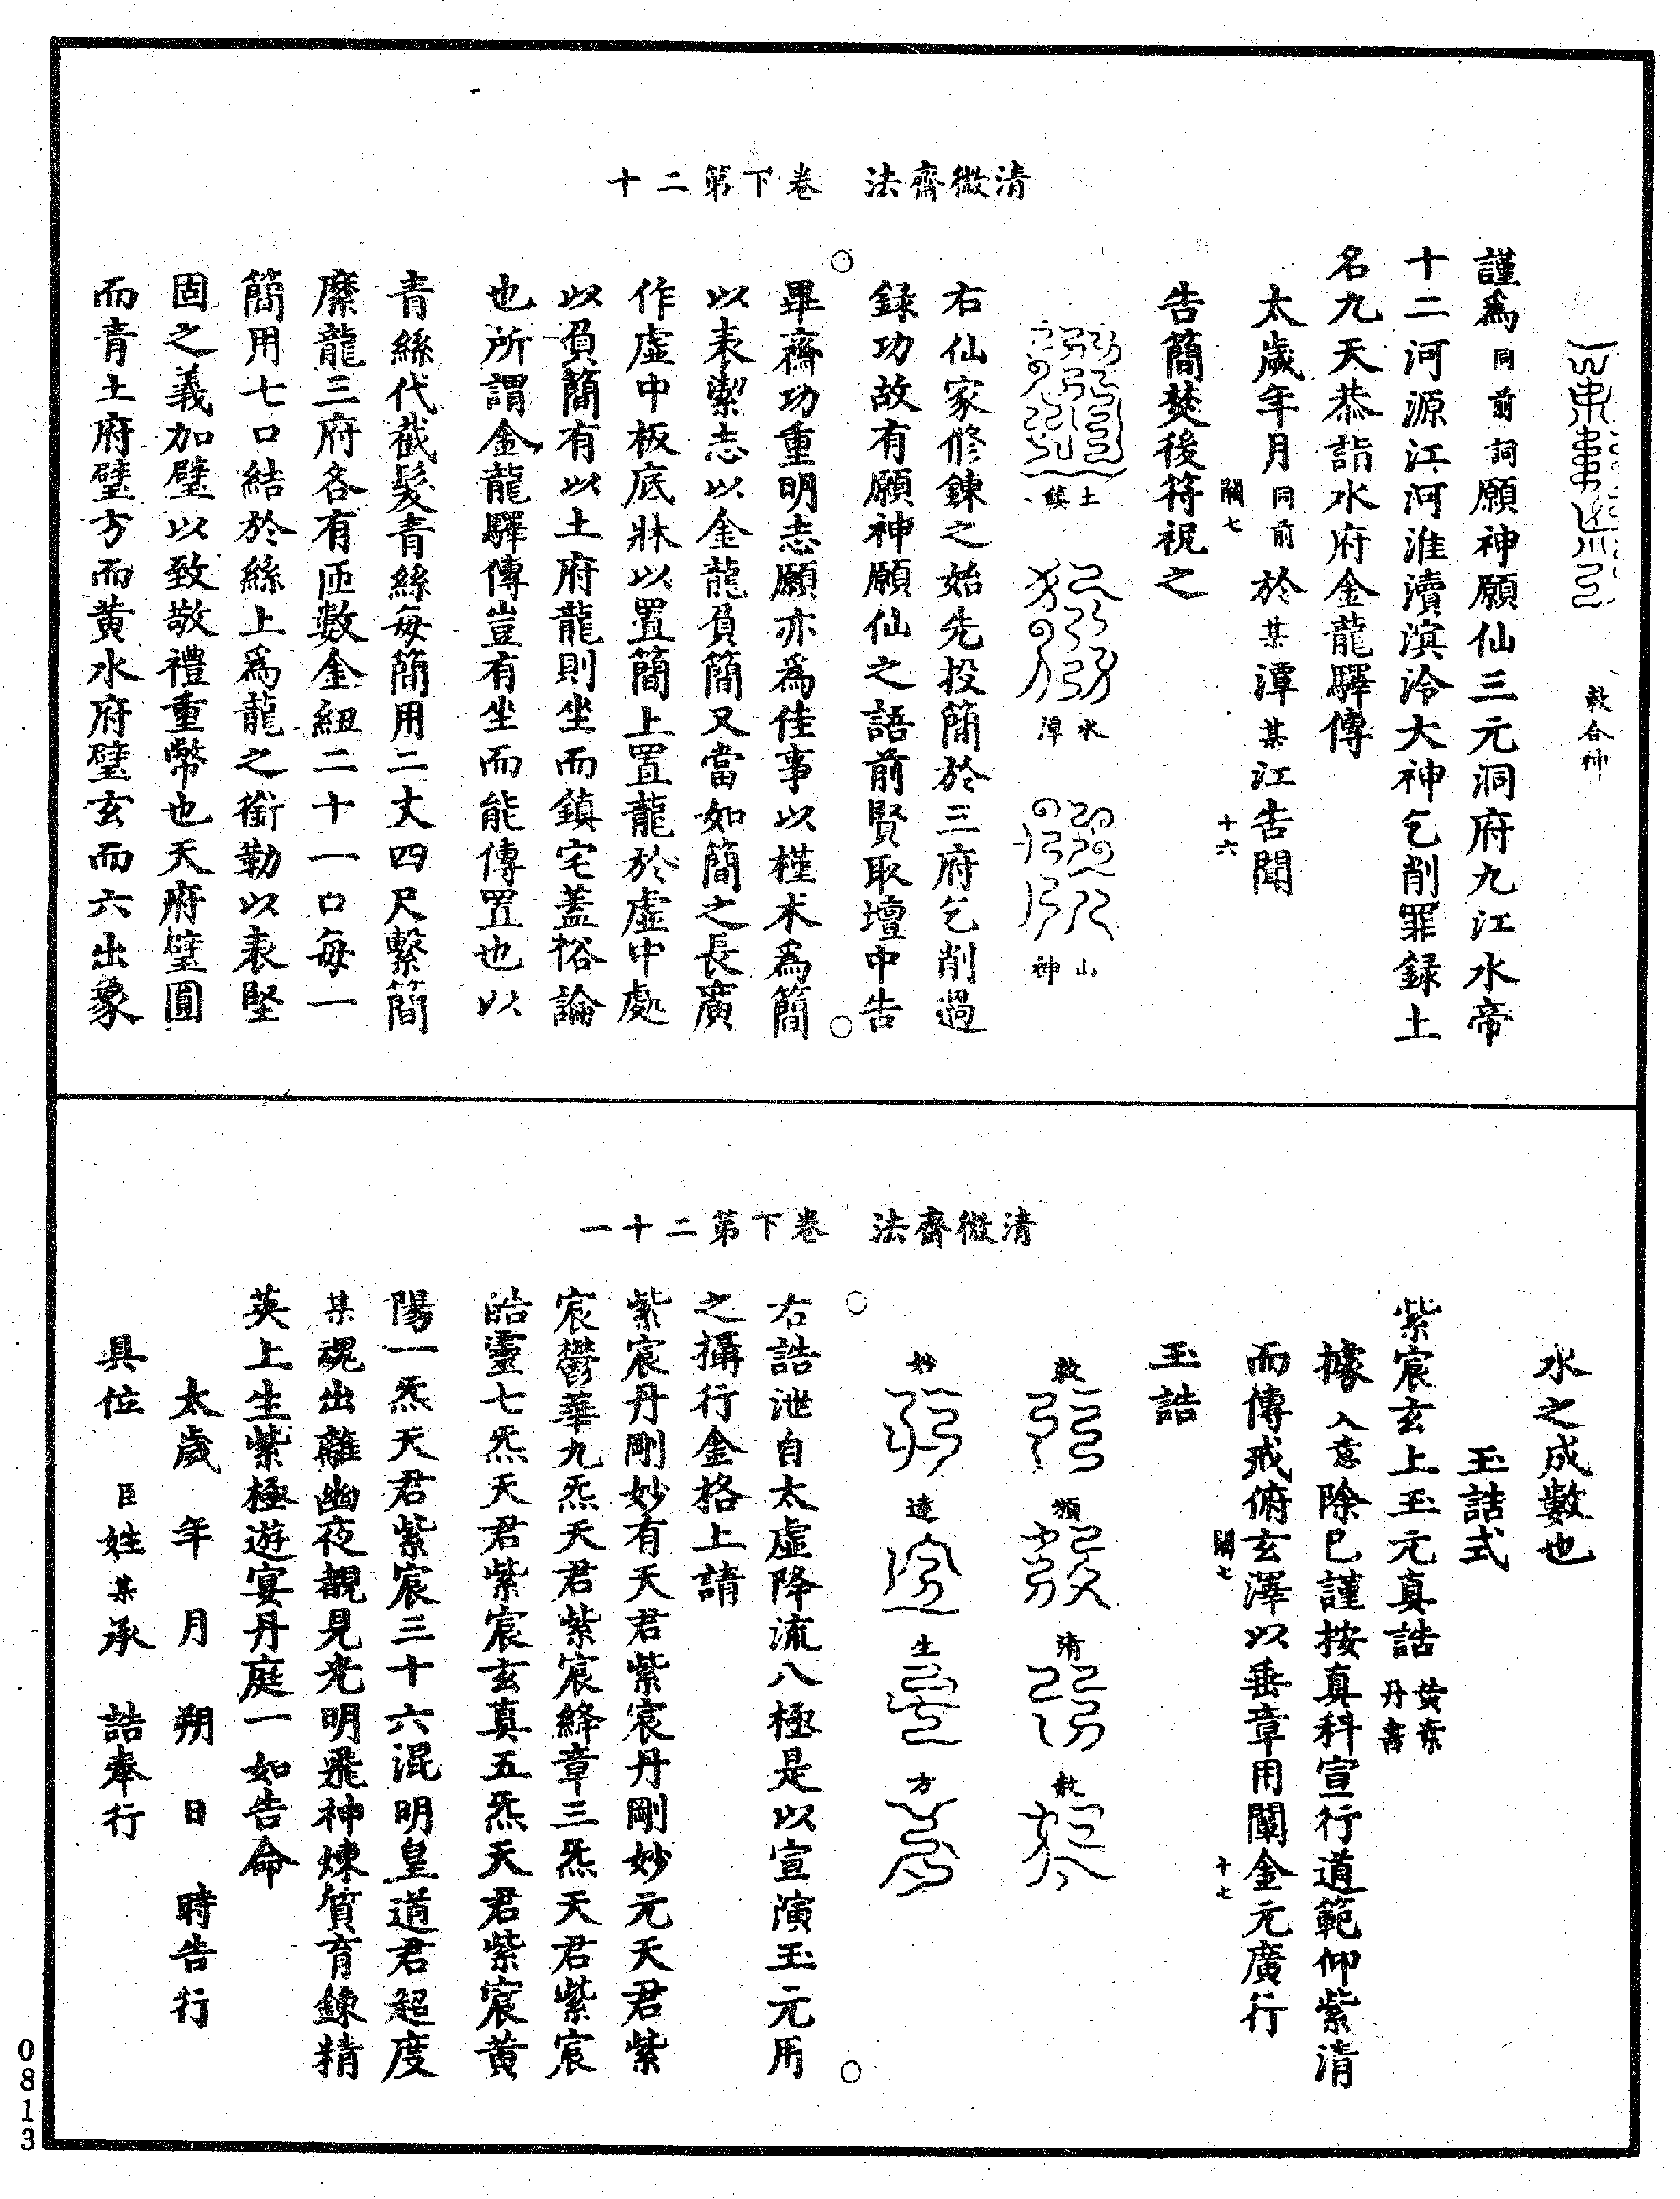 清微齋法　卷下第二十
敕合神
謹爲同前詞願神願仙三元洞府九江水帝
十二河源江河淮瀆溟泠大神乞削罪録土
名九天恭詣水府金龍驛傳
太歲年月同前於某潭某江告聞
闕七　十六
告簡焚後符祝之
土鎮　水潭　山神
右仙家修鍊之始先投簡於三府乞削過
録功故有願神願仙之語前賢取壇中告
畢齋功重明志願亦爲佳事以槿木爲簡
以表潔志以金龍負簡又當如簡之長廣
作虛中板底牀以置簡上置龍於虛中處
以負簡有以土府龍則坐而鎮宅蓋俗論
也所謂金龍驛傳豈有坐而能傳置也以
青絲代截髮青絲每簡用二丈四尺繫簡
縻龍三府各有匝數金紐二十一口每一
簡用七口結於絲上爲龍之銜勒以表堅
固之義加璧以致敬禮重幣也天府璧圓
而青土府璧方而黄水府璧玄而六出象
清微齋法　卷下第二十一
水之成數也
玉誥式
紫宸玄上玉元真誥黄素丹書
據入意除已謹按真科宣行道範仰紫清
而傳戒俯玄澤以垂章用闡金元廣行
闕七　十七
玉誥
敕　須　清　敕
妙　達　生　方
右誥泄自太虛降流八極是以宣演玉元用
之攝行金格上請
紫宸丹剛妙有天君紫宸丹剛妙元天君紫
宸鬱華九炁天君紫宸絳章三炁天君紫宸
皓靈七炁天君紫宸玄真五炁天君紫宸黄
陽一炁天君紫宸三十六混明皇道君超度
某魂出離幽夜覩見光明飛神煉質育鍊精
英上生紫極遊宴丹庭一如告命
太歲　年　月　朔　日　時告行
具位　臣姓某承　誥奉行
0813